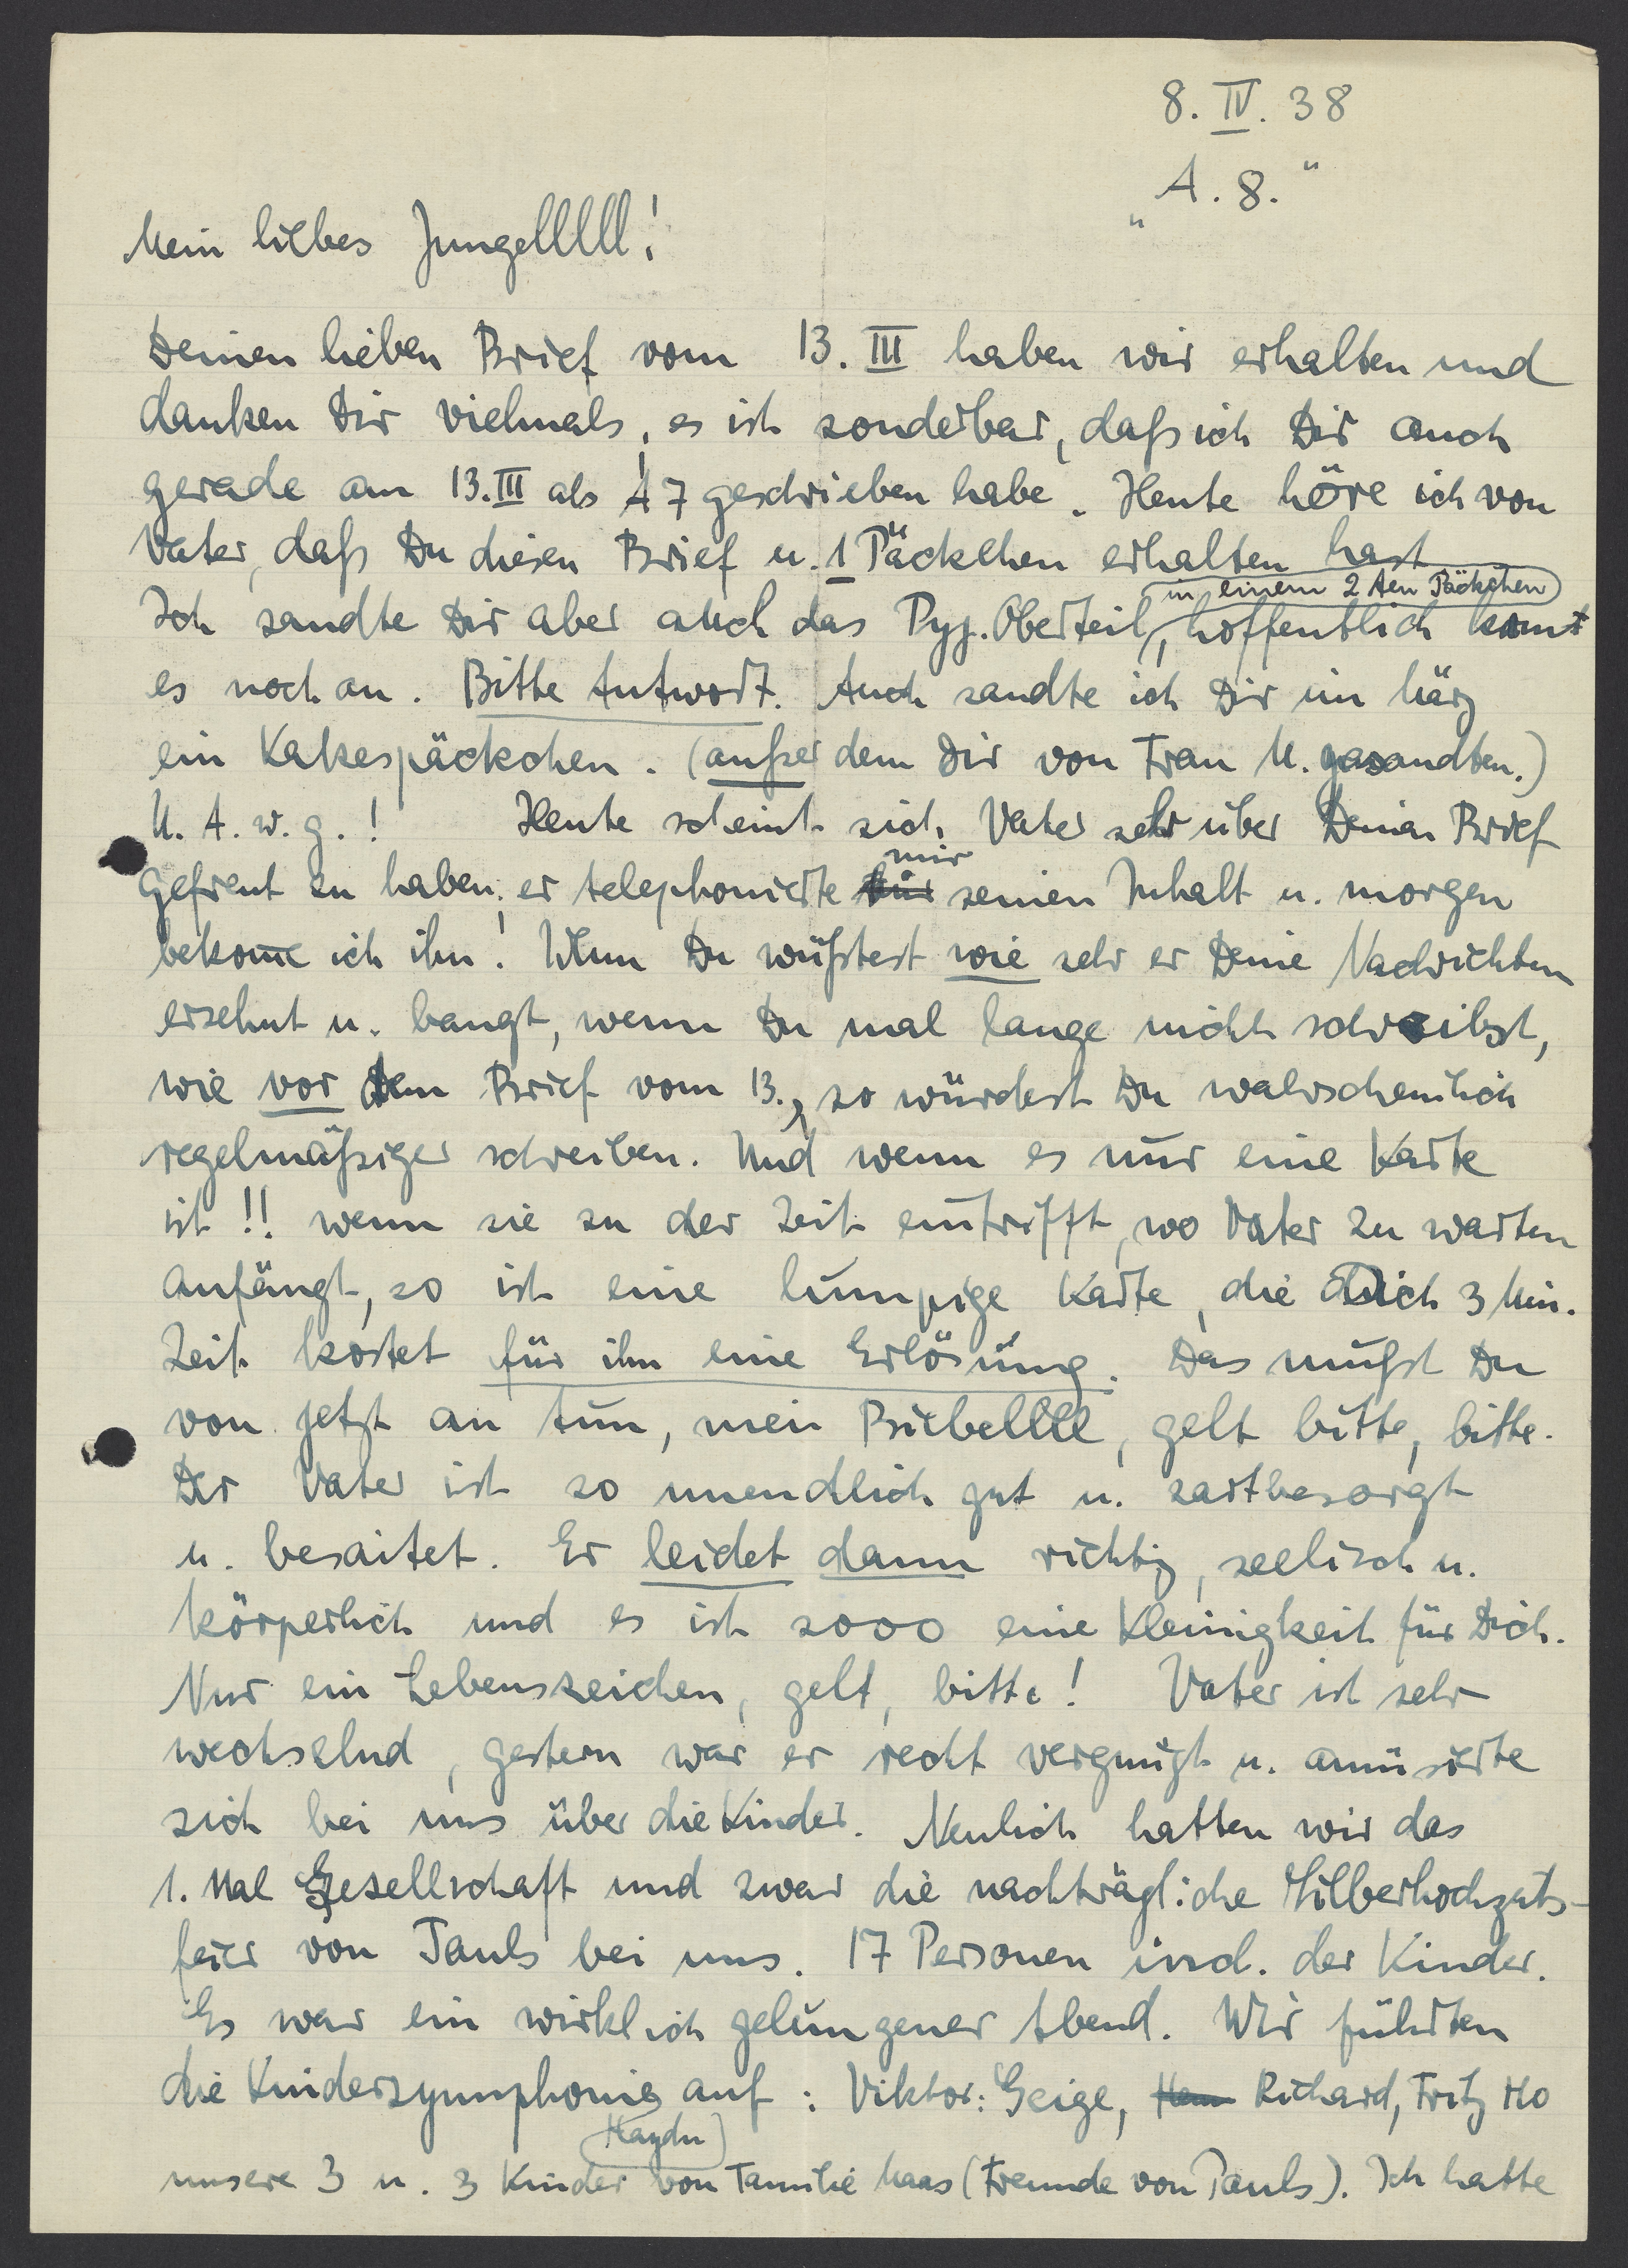 8. IV. 38
„A. 8."
Mein liebes Jungelllll!
Deinen lieben Brief vom 13. III haben wir erhalten und
danken Dir vielmals, es ist sonderbar, daß ich Dir auch
gerade am 13. III als A 7 geschrieben habe. Heute höre ich von
Vater, daß Du diesen Brief u. 1 Päckchen erhalten hast
in einem 2ten Päckchen
Ich sandte Dir aber auch das Pyj. Oberteil, hoffentlich komt
es noch an. Bitte Antwort. Auch sandte ich Dir im März
ein Kakespäckchen. (außer dem Dir von Frau M. gesandten.)
U. A. w. g.! Heute scheint sich Vater sehr über Deinen Brief
mir
gefreut zu haben; er telephonierte seinen Inhalt u. morgen
bekome ich ihn! Wenn Du wüßtest wie sehr er Deine Nachrichten
ersehnt u. bangt, wenn Du mal lange nicht schreibst,
wie vor dem Brief vom 13., so würdest Du wahrscheinlich
regelmäßiger schreiben. Und wenn es nur eine Karte
ist!! wenn sie zu der Zeit eintrifft, wo Vater zu warten
anfängt, so ist eine lumpige Karte, die Dich 3 Min.
Zeit kostet für ihn eine Erlösung. Das mußt Du
von jetzt an tun, mein Bubellll, gelt bitte, bitte.
Der Vater ist so unendlich gut u. zartbesorgt
u. besaitet. Er leidet dann richtig, seelisch u.
körperlich und es ist sooo eine Kleinigkeit für Dich.
Nur ein Lebenszeichen, gelt, bitte! Vater ist sehr
wechselnd, gestern war er recht vergnügt u. amüsierte
sich bei uns über die Kinder. Neulich hatten wir das
1. Mal Gesellschaft und zwar die nachträgliche Silberhochzeits-
feier von Pauls bei uns. 17 Personen incl. der Kinder.
Es war ein wirklich gelungener Abend. Wir führten
die Kindersymphonie auf: Viktor: Geige, Richard, Fritz Mo
(Haydn)
unsere 3 u. 3 Kinder von Familie Maas (Freunde von Pauls). Ich hatte